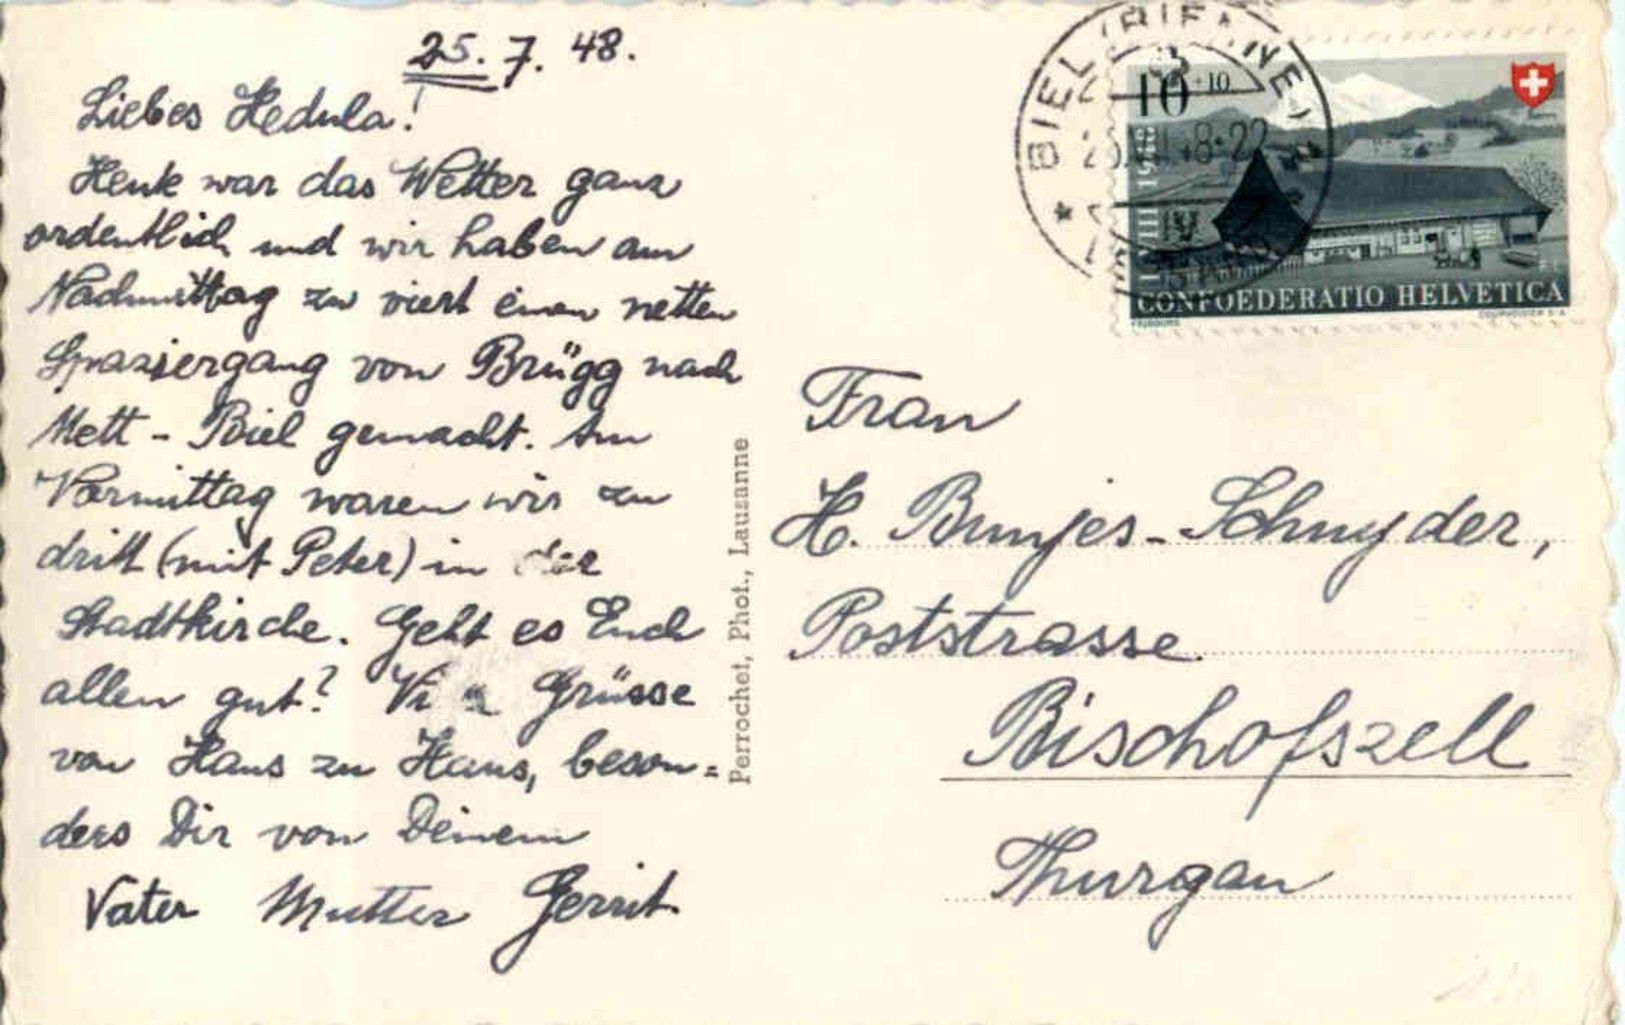 25. 7. 48.
Liebes Hedula!
Heute war das Wetter ganz
ordentlich und wir haben am
Nachmittag zu viert einen netten
Spaziergang von Brügg nach
Mett - Biel gemacht. Am
Vormittag waren wir zu
dritt (mit Peter) in der
Stadtkirche. Geht es Euch
allen gut? Grüsse
von Haus zu Haus, beson=
ders Dir von Deinem
Vater Mutter Gerrit.
Perrochet, Phot., Lausanne
BIEL (BIENNE) 1
10 +10
CONFOEDERATIO HELVETICA
Frau
H. Bunjes-Schnyder,
Poststrasse.
Bischofszell
Thurgau